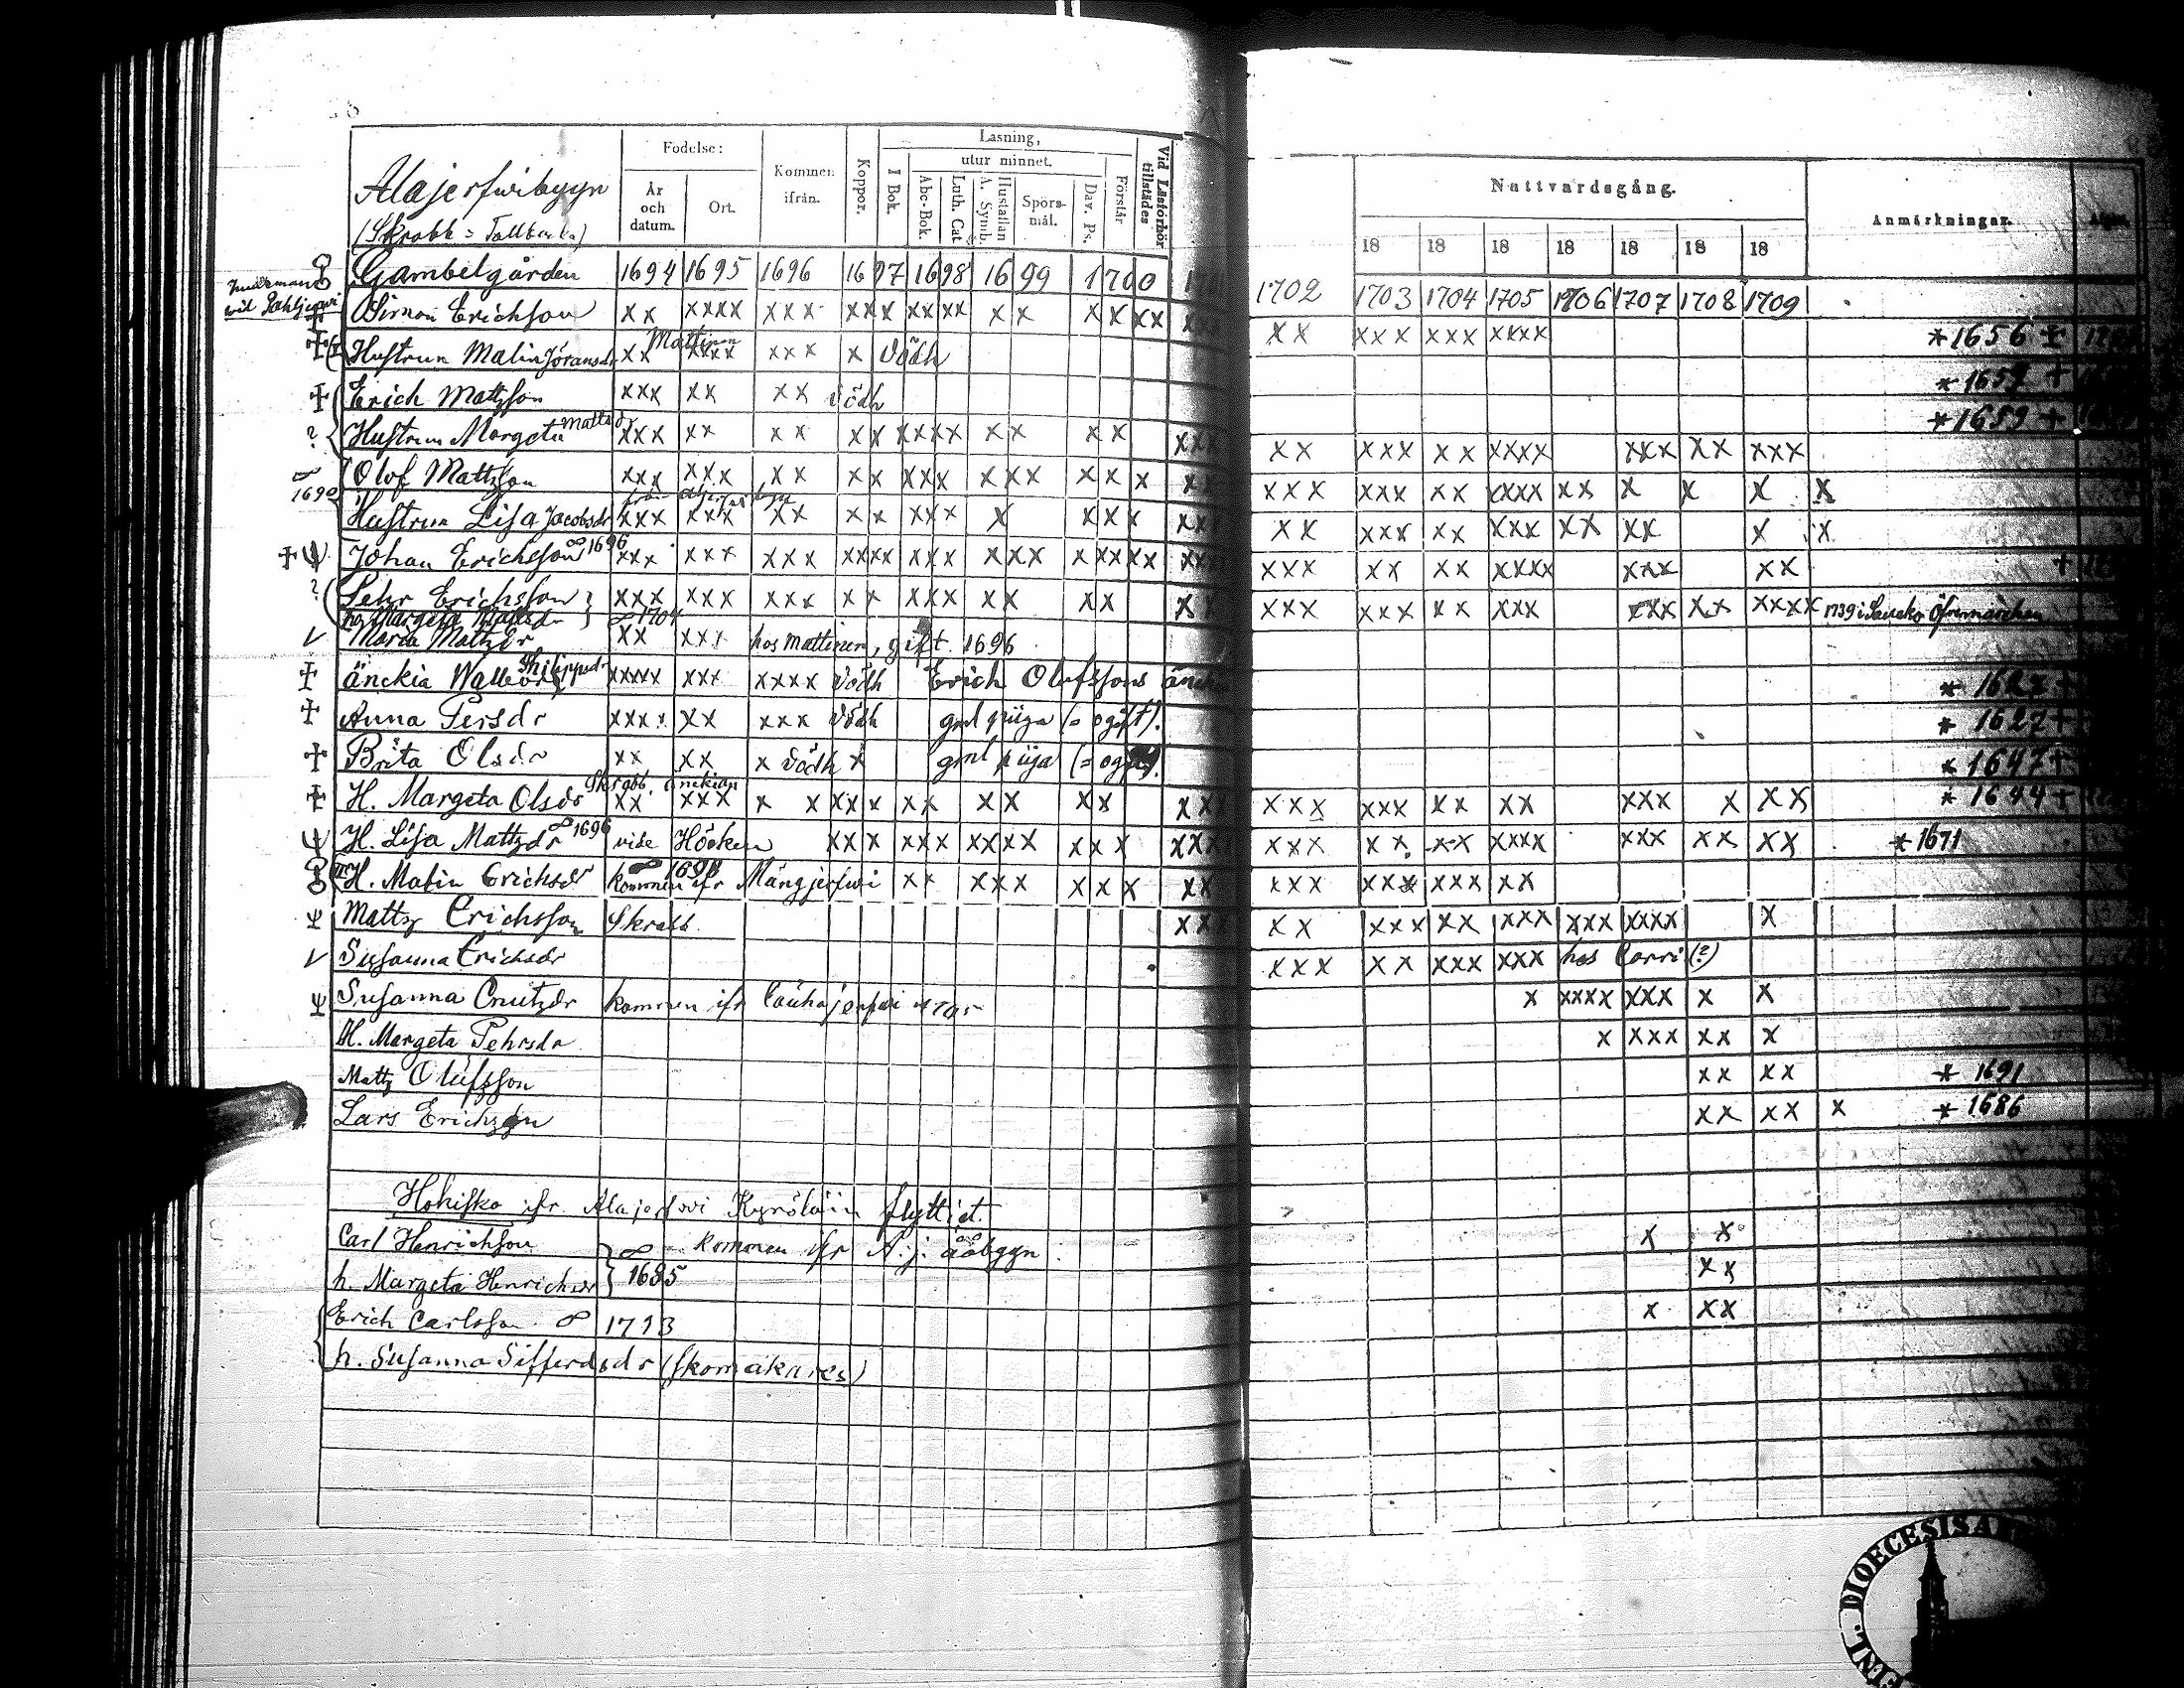 Alajerfwibyyn
(Skrabb = Tallbacka)
Födelse:
År och datum.
Ort.
Kommen ifrån.
Koppor.
Läsning,
I Bok.
utur minnet.
Abc-Bok.
Luth. Cat
A. Symb.
Hustaflan &
Spörs-mål.
Dav. Ps.
Förstår
Vid Läsförhör tillstädes
Nattvardsgång.
Anmärkningar.
18 18 18 18 18 18 18
Gambelgården 1694 1695 1696 1697 1698 1699 1700 1702 1703 1704 1705 1706 1707 1708 1709
Simon Erichson xx xxxx xxx xxx xxxx xx xx xx xxx xx xxx xxx xxxx * 1656 +
Mattinen
Hustrun Malin Jöransdr xx xxxx xxx x dödh * 1659 +
Erich Mattzson xxx xx xx dödh * 1659 +
? Hustrun Margeta Mattsdr xxx xx xx xx xxxx xx xx xxx xx xxx xx xxxx xxx xx xxx
∞ 1690 Olof Mattzson xxx xxx xx xx xxx xxx xx x xx xxx xxx xx xxxx xx x x x x
Hustrun Lisa Jacobsdr xxx xxx xx xx xxx x xxx xx xx xxx xx xxx xx xx x x
Johan Erichsson ∞ 1696 xxx xxx xxx xxxx xxx xxx xxxxx xxx xxx xx xx xxxx xxx xx +
? Pehr Erichsson xxx xxx xxx xx xxx xx xx xx xxx xxx xx xxx xxx xx xxxx 1739 i
h. Margeta Mattsdr ∞ 1704
Maria Mattzdr xx xxx hos mattinen, gift 1696
änckia Walborg Philippsdr xxxx xxx xxxx dödh Erich Olofssons änckia * 1627 +
Anna Persdr xxxx xx xxx dödh gml piiga (= ogift). * 1627 +
Brita Olsdr xx xx x dödh x gml piiga (= ogift). * 1647 +
Skrabb. änckian
H. Margeta Olsdr xx xxx x x xx x xx xx xx xxx xxx xxx xx xx xxx x xx * 1644 +
H. Lisa Mattzdr ∞ 1696 vide Höcken xxx xxx xxxx xxx xxxx xxx xx xx xxxx xxx xx xx * 1671
H. Malin Erichsdr kommen ifr Mängjerfwi xx xxx xxx xx xxx xxx xxx xx
Mattz Erichsson Skrabb. xxx xx xxx xx xxx xxx xxxx x
Susanna Erichsdr xxx xx xxx xxx hos Corri (?)
Susanna Cnutzdr kommen ifr Cauhajerfwi x xxxx xxx x x
H. Margeta Pehrsdr x xxx xx x
Mattz Olufsson xx xx * 1691
Lars Erichzon xx xx x * 1686
Hokisko ifr. Alajerfwi Kyröläin flyttiat.
Carl Henrichson ∞ kommen ifr A:j: ååbyyn x x
h. Margeta Henrichsdr 1685 xx
Erich Carlsson ∞ 1713 x xx
h. Susanna Siffersdr (skomakares)
FINL. DIOECESIS